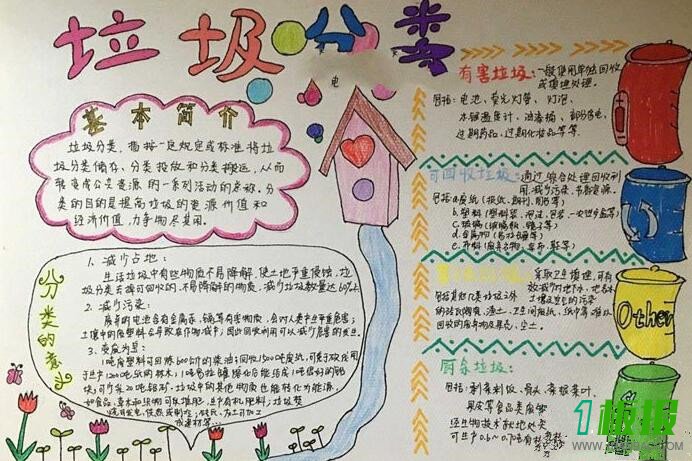 垃圾分类
电
基本简介
垃圾分类,指按一定规定或标准将垃
圾分类储存、分类投放和分类搬运,从而
转变成公共资源的一系列活动的总称。分
类的目的是提高垃圾的资源价值和
经济价值,力争物尽其用。
分类的意义
1、减少占地:
生活垃圾中有些物质不易降解,使土地严重侵蚀,垃
圾分类去掉可回收的、不易降解的物质,减少垃圾数量达60%
2、减少污染:
废弃的电池含有金属汞、镉等有毒物质,会对人类产生严重危害;
土壤中的废塑料会导致农作物减产;因此回收利用可以减少危害的发生。
3、变废为宝:
1吨废塑料可回炼600公斤的柴油;回收1500吨废纸,可免于砍伐用
于生产1200吨纸的林木;
垃圾中的其他物质也能转化为资源,
如食品、草木和织物可以堆肥,生产有机肥料;垃圾焚
有害垃圾:一般使用单独回收
或填埋处理。
包括:电池、荧光灯管、灯泡、
水银温度计、油漆桶、部分家电、
过期药品、过期化妆品等等。
可回收垃圾:通过综合处理回收利
用,减少污染,节省资源。
包括a.废纸(报纸、期刊、图书等)
b.塑料(塑料袋、
c.玻璃(玻璃瓶、镜子等)
d.金属物(易拉罐等)
e.布料(废弃衣物、
采取卫生填埋,可有
效减少对地下水、地表水、
土壤及空气的污染
包括
的砖瓦陶瓷、渣土、卫生间废纸、纸巾等难以
回收的废弃物及果壳、尘土。
Other
厨余垃圾:
包括:剩菜剩饭、骨头、菜根菜叶、
果皮等食品类废物
经生物技术就地处
可生产0.6~0.7吨有
1板报